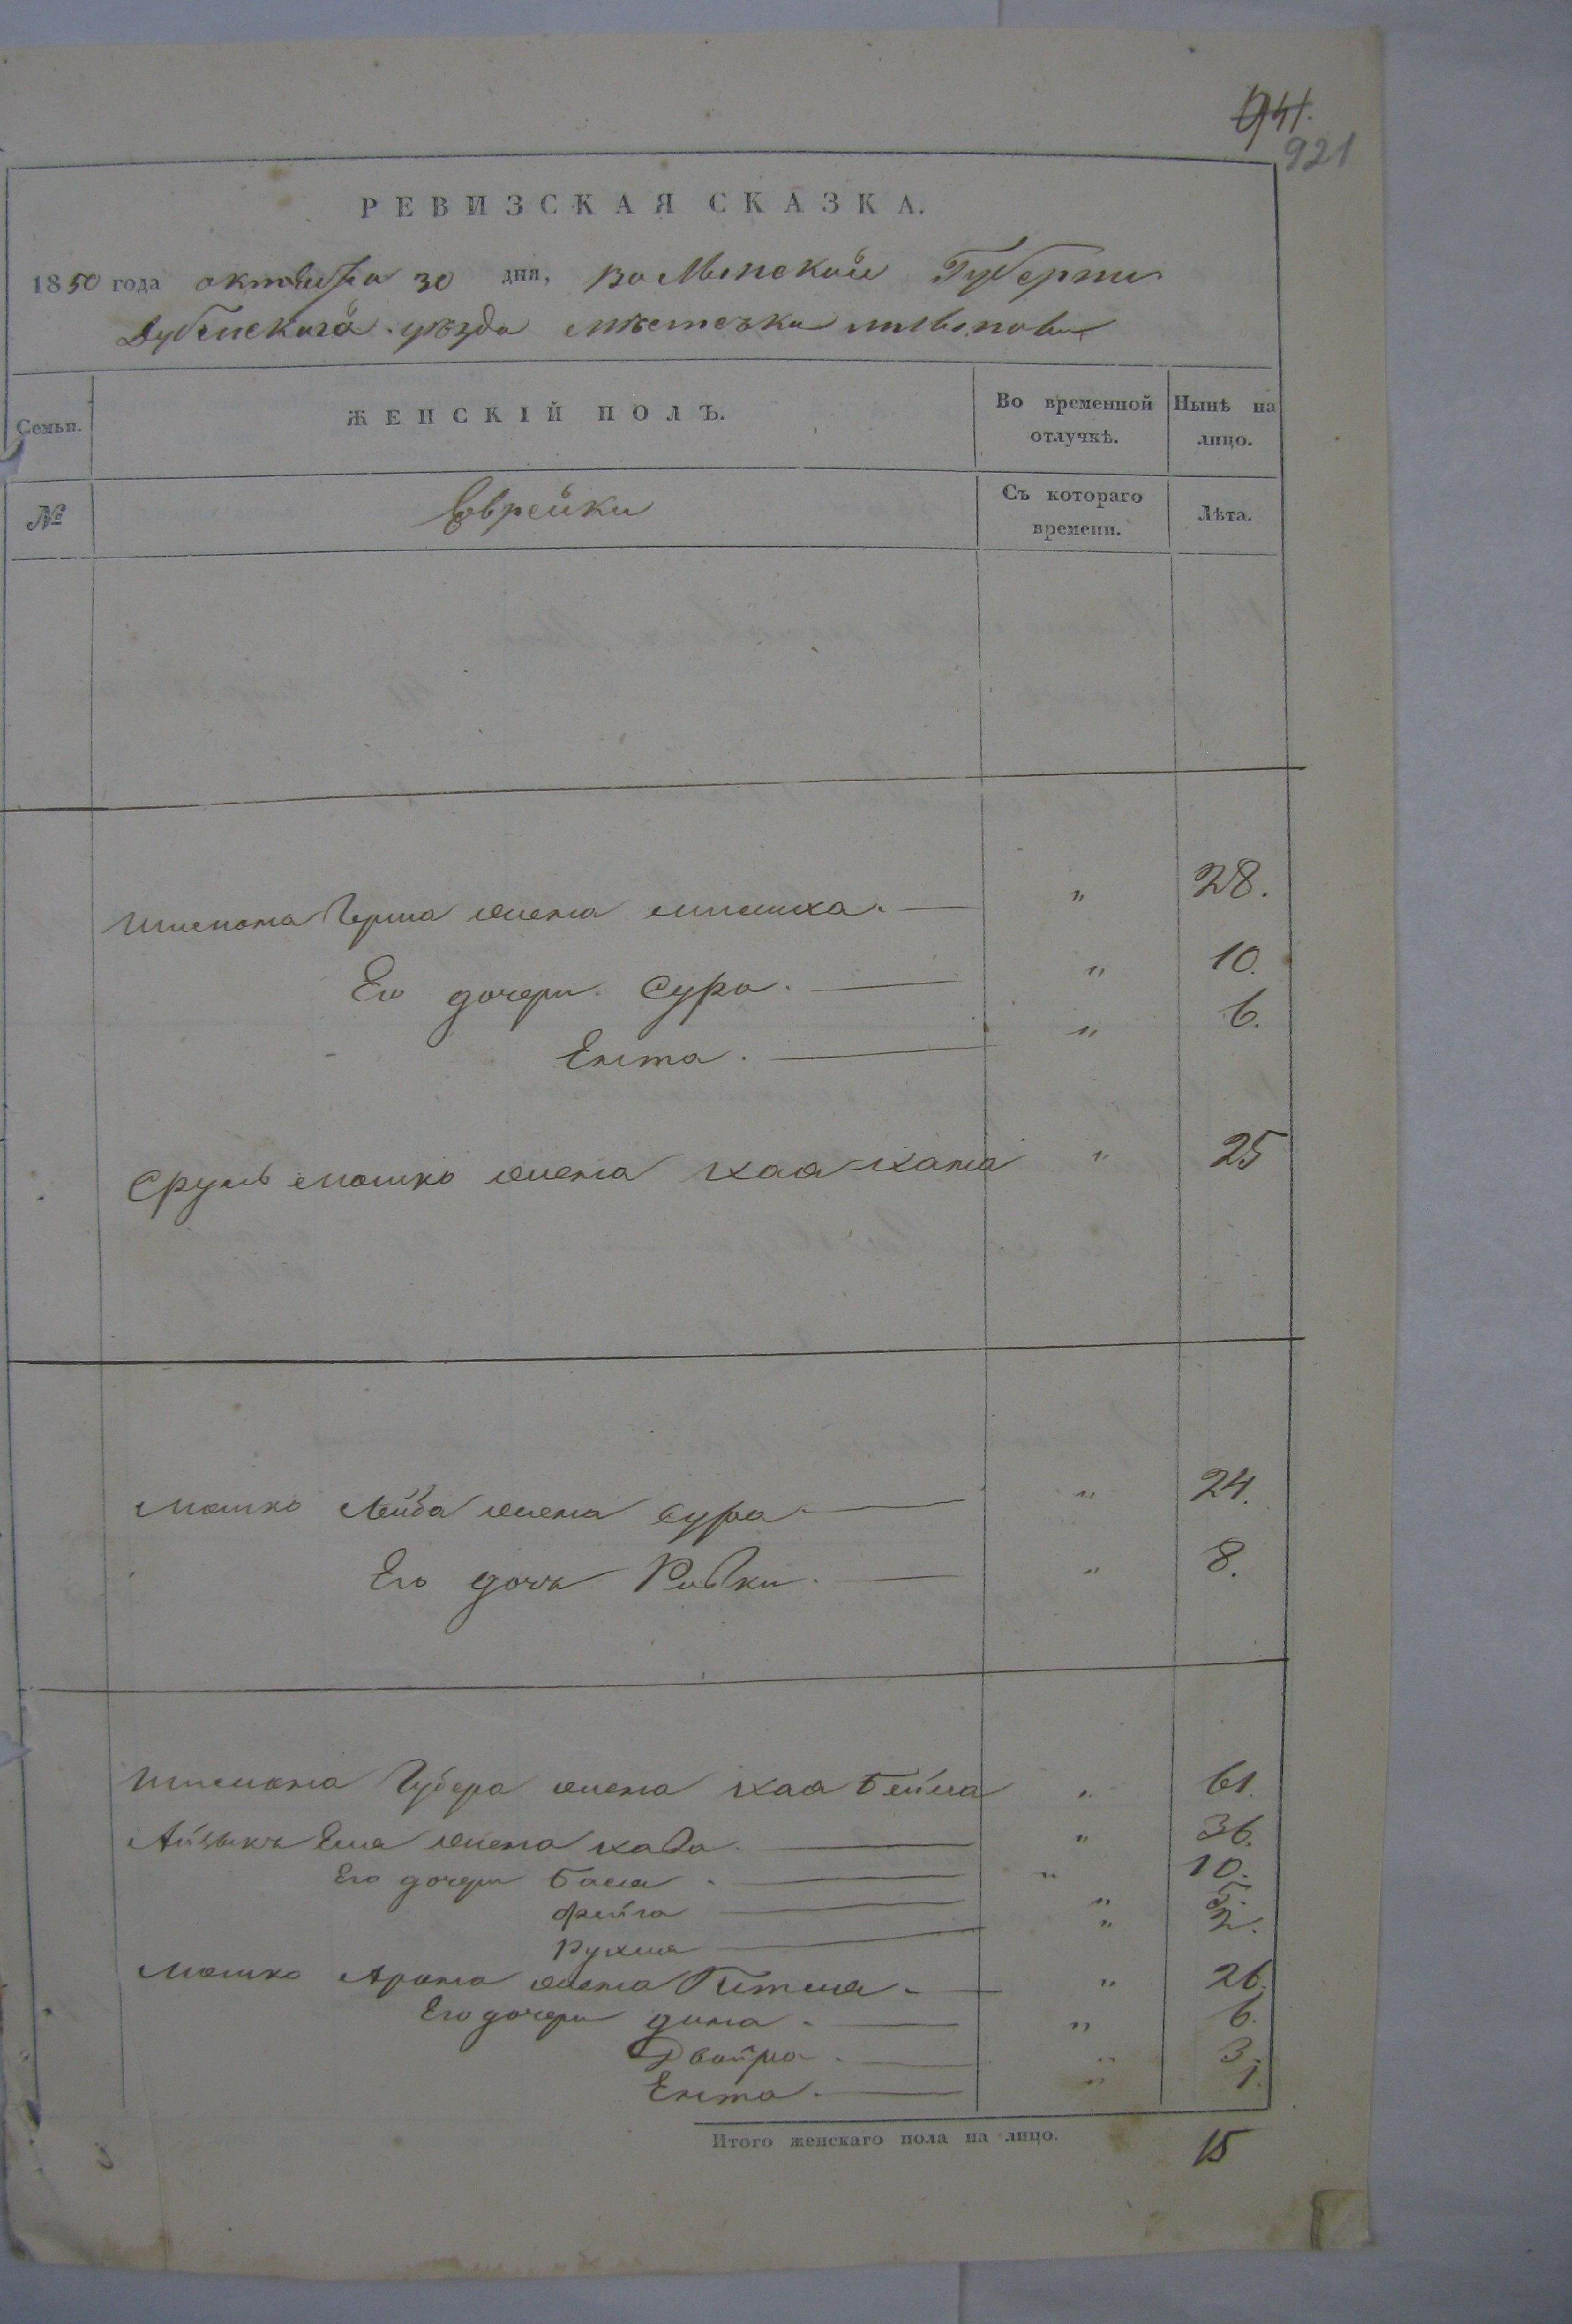 941.
921
РЕВИЗСКАЯ СКАЗКА.
1850 года октября 30 дня, Волынской Губерни
Дубенскаго уѣзда мѣстечка млынова
Семьи.
ЖЕНСКІЙ ПОЛЪ.
Во временной отлучкѣ.
Нынѣ на лицо.
№
Еврейки
Съ котораго времени.
Лѣта.
Шлемы Герша жена " 28.
Его дочери Сура. " 10.
Ента. " 6.
Сруль мошко жена хая хана " 25
Мошко Лейба жена сура " 24.
Его дочь Ривки. " 8.
жена хая Бейла " 61.
Айзыкъ жена хава. " 36.
Его дочери Бася. " 10.
фейга " 5.
Рухля " 2.
Мошко Арона жена Гитля. " 26.
Его дочери дина. " 6.
Двойра. " 3.
Ента. " 1.
Итого женскаго пола на лицо. 15